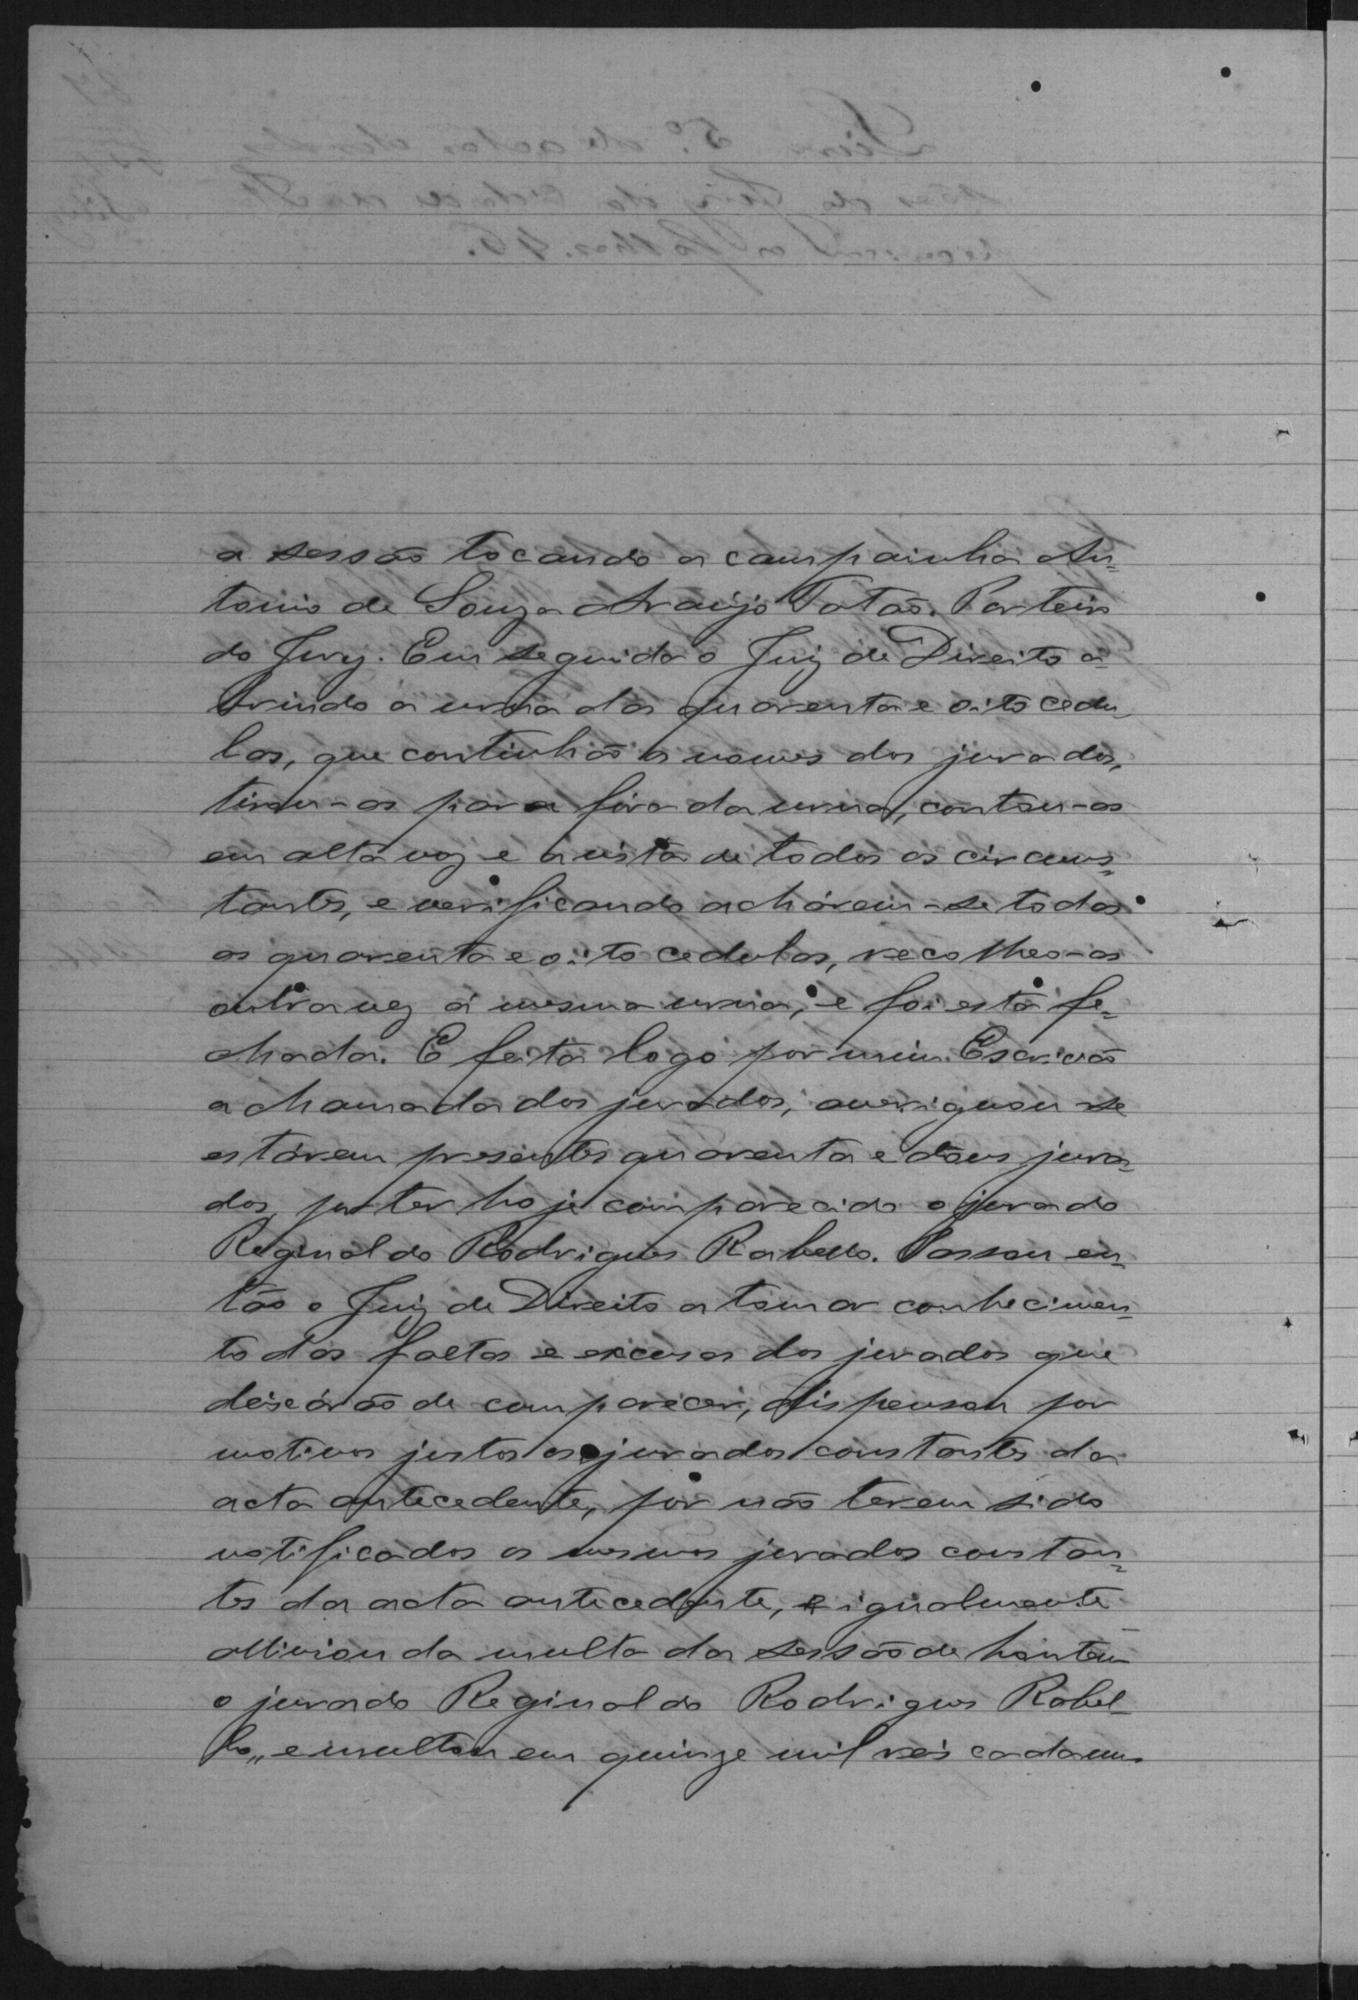 a sessão tocando a campainha An-
tonio de Souza Araujo Tatão. Porteiro
do Jury. Em seguida o Juiz de Direito a-
brindo a urna das quarenta e oito cedu-
las, que continhão os nomes dos jurados,
tirou-as para fóra da urna, contou-as
em alta voz e á vista de todos os circuns-
tantes, e verificando acharem-se todas
as quarenta e oito cedulas, recolheo-as
outra vez á mesma urna, e foi esta fe-
chada. E feita logo por mim Escrivão
a chamada dos jurados, averiguou se
estárem presentes quarenta e dous jura-
dos, por ter hoje comparecido o jurado
Reginaldo Rodrigues Rabello. Passou en-
tão o Juiz de Direito a tomar conhecimen-
to das faltas e excusas dos jurados que
deixárão de comparecer, dispensou por
motivos justos os jurados constantes da
acta antecedente, por não terem sido
notificados os mesmos jurados constan-
tes da acta antecedente, e igualmente
alliviou da multa da sessão de hontem
o jurado Reginaldo Rodrigues Rabel-
lo, e multou em quinze mil reis cada um